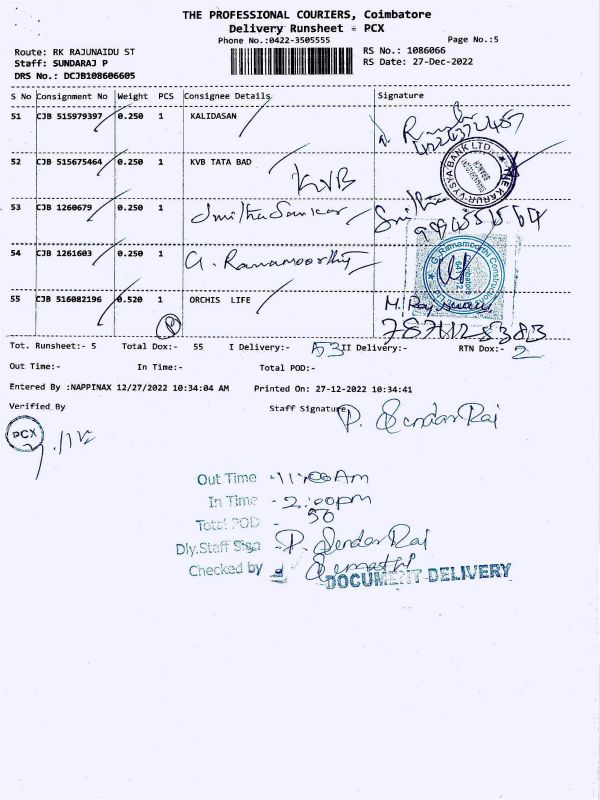 THE PROFESSIONAL COURIERS, Coimbatore
Delivery Runsheet - PCX
Phone No.:0422-3505555
Page No.:5
Route: RK RAJUNAIDU ST
RS No.: 1086066
Staff: SUNDARAJ P
RS Date: 27-Dec-2022
DRS No.: DCJB108606605
S No Consignment No Weight PCS Consignee Details Signature
51 CJB 515979397 0.250 1 KALIDASAN
52 CJB 515675464 0.250 1 KVB TATA BAD
KVB
THE KARUR VYSYA BANK LTD.
BRANCH
53 CJB 1260679 0.250 1
54 CJB 1261603 0.250 1 G. Ramamoorthy
G. Ramamoorthi Constructions
55 CJB 516082196 0.520 1 ORCHIS LIFE
Tot. Runsheet:- 5 Total Dox:- 55 I Delivery:- 53 II Delivery:- RTN Dox:- 2
Out Time:- In Time:- Total POD:-
Entered By :NAPPINAX 12/27/2022 10:34:04 AM Printed On: 27-12-2022 10:34:41
Verified By Staff Signature P. SendarRaj
PCX
Out Time - 11:00 Am
In Time - 2:00pm
Total POD - 50
Dly.Staff Sign - P. SendarRaj
Checked by
DOCUMENT DELIVERY